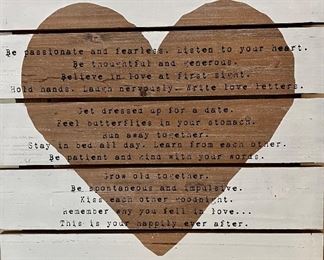 Be passionate and fearless. Listen to your heart.
Be thoughtful and generous.
Believe in love at first sight.
Hold hands. Laugh nervously. Write love letters.
Get dressed up for a date.
Feel butterflies in your stomach.
Run away together.
Stay in bed all day. Learn from each other.
Be patient and kind with your words.
Grow old together.
Be spontaneous and impulsive.
Kiss each other goodnight.
Remember why you fell in love...
This is your happily ever after.